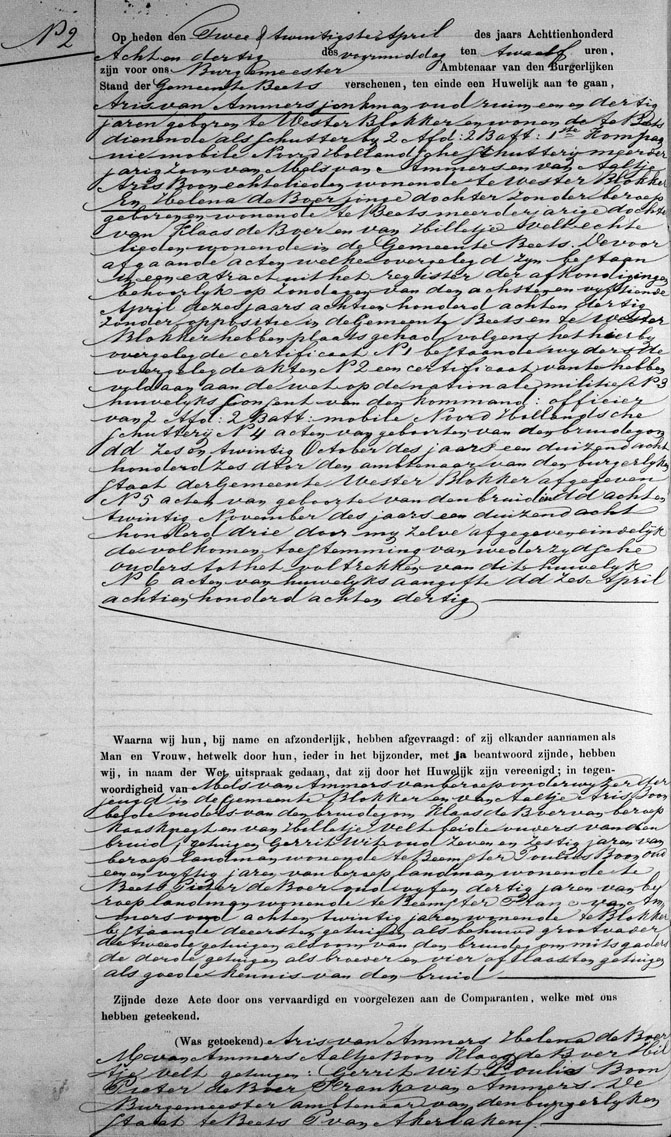 N 2
Op heden den Twee & twintigster April des jaars Achttienhonderd
Acht en dertig des voormiddag ten twaalf uren,
zijn voor ons Burgemeester Ambtenaar van den Burgerlijken
Stand der Gemeente Beets verschenen, ten einde een Huwelijk aan te gaan,
Aris van Ammers jonkman oud ruim een en dertig
jaren geboren te Wester Blokker en wonende te Beets
dienende als schutter by 2 Afd: 2 Batt: 1ste Kompag
nie mobile Noord Hollandsche Schutterij meerder
jarig zoon van Mels van Ammers en van Aaltje
Aris Boon echtelieden wonende te Wester Blokker
En Helena de Boer jonge dochter zonder beroep
geboren en wonende te Beets meerderjarige dochter
van Klaas de Boer en van Hilletje Velt echte
lieden wonende in de Gemeente Beets. De voor
afgaande acten welke overgelegd zyn bestaan
in een extract uit het register der afkondigingen
behoorlyk op Zondagen van den achtsten en vyftiende
April dezes jaars achtien honderd acht en dertig
zonder oppositie in de Gemeente Beets en te Wester
Blokker hebben plaats gehad volgens het hier by
overgelegde certificaat N 1 bestaande wyders de
overgelegde akten N 2 een certificaat van te hebben
voldaan aan de wet op de nationale militie N 3
huwelyks Consent van den kommand: officier
van 2 Afd: 2 Batt: mobile Noord Hollandsche
Schuttery N 4 acten van geboorten van den bruidegom
dd zes en twintig October des jaars een duizend acht
honderd zes door den ambtenaar van den burgerlyken
Staat der Gemeente Wester Blokker afgegeven
N 5 acten van geboorte van den bruid dd acht en
twintig November des jaars een duizend acht
honderd drie door my zelve afgegeven eindelyk
de volkomen toestemming van wederzydsche
ouders tot het voltrekken van dit huwelyk
N 6 acten van huwelyks aangifte dd zes April
achtien honderd acht en dertig
Waarna wij hun, bij name en afzonderlijk, hebben afgevraagd: of zij elkander aannamen als
Man en Vrouw, hetwelk door hun, ieder in het bijzonder, met ja beantwoord zijnde, hebben
wij, in naam der Wet, uitspraak gedaan, dat zij door het Huwelijk zijn vereenigd; in tegen-
woordigheid van Mels van Ammers van beroep onderwyzer der
jeugd in de Gemeente Blokker en van Aaltje Aris Boon
beide ouders van den bruidegom Klaas de Boer van beroep
kaasknegt en van Hilletje Velt beide ouders van den
bruid; getuigen Gerrit Wit oud zeven en zestig jaren van
beroep landman wonende te Beemster Poulus Boon oud
een en vyftig jaren van beroep landman wonende te
Beets Pieter de Boer oud vyf en dertig jaren van be
roep landman wonende te Beemster Frans van Am
mers oud acht en twintig jaren wonende te Blokker
bestaande de eersten getuigen als behuwd grootvader
de tweede getuigen als oom van den bruidegom mitsgaders
de derde getuigen als broeder en vier of laasten getuigen
als goede kennis van den bruid
Zijnde deze Acte door ons vervaardigd en voorgelezen aan de Comparanten, welke met ons
hebben geteekend.
(Was geteekend) Aris van Ammers Helena de Boer
M van Ammers Aaltje Boon Klaas de Boer Hil
tje Velt getuigen: Gerrit Wit Poulis Boon
Pieter de Boer Frank van Ammers De
Burgemeester ambtenaar van den burgerlyken
Staat te Beets P van Akerlaken